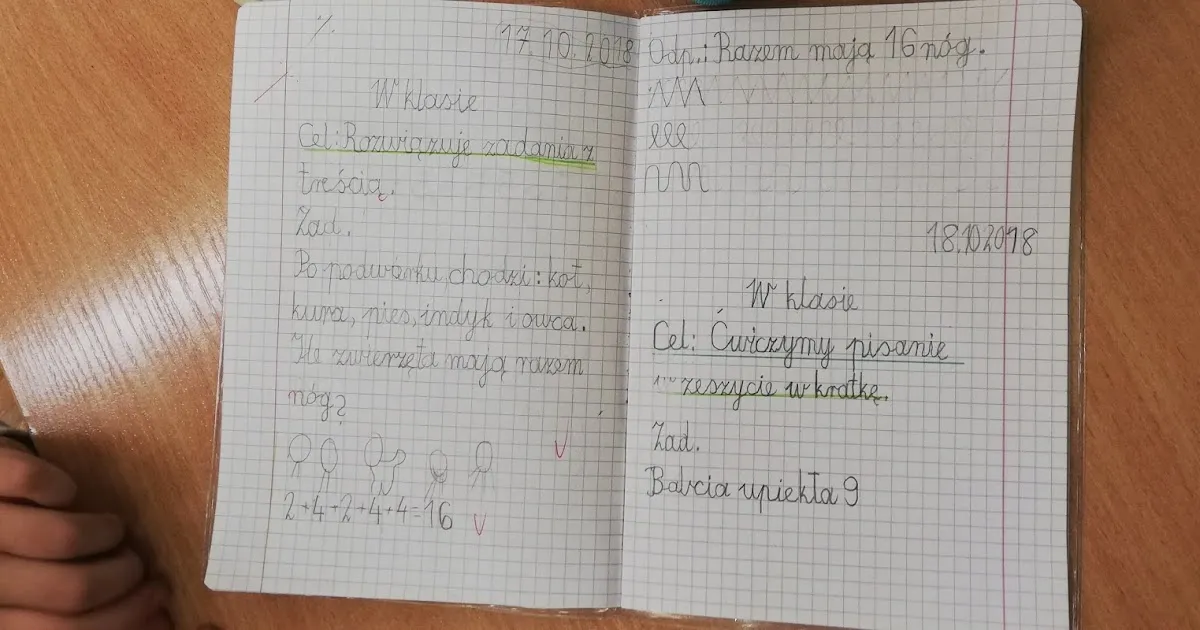 17.10.2018
W klasie
Cel: Rozwiązuje zadania z
treścią.
Zad.
Po podwórku chodzi: kot,
kura, pies, indyk i owca.
Ile zwierzęta mają razem
nóg?
2+4+2+4+4=16
Odp.: Razem mają 16 nóg.
18.102018
W klasie
Cel: Ćwiczymy pisanie
w zeszycie w kratkę.
Zad.
Babcia upiekła 9